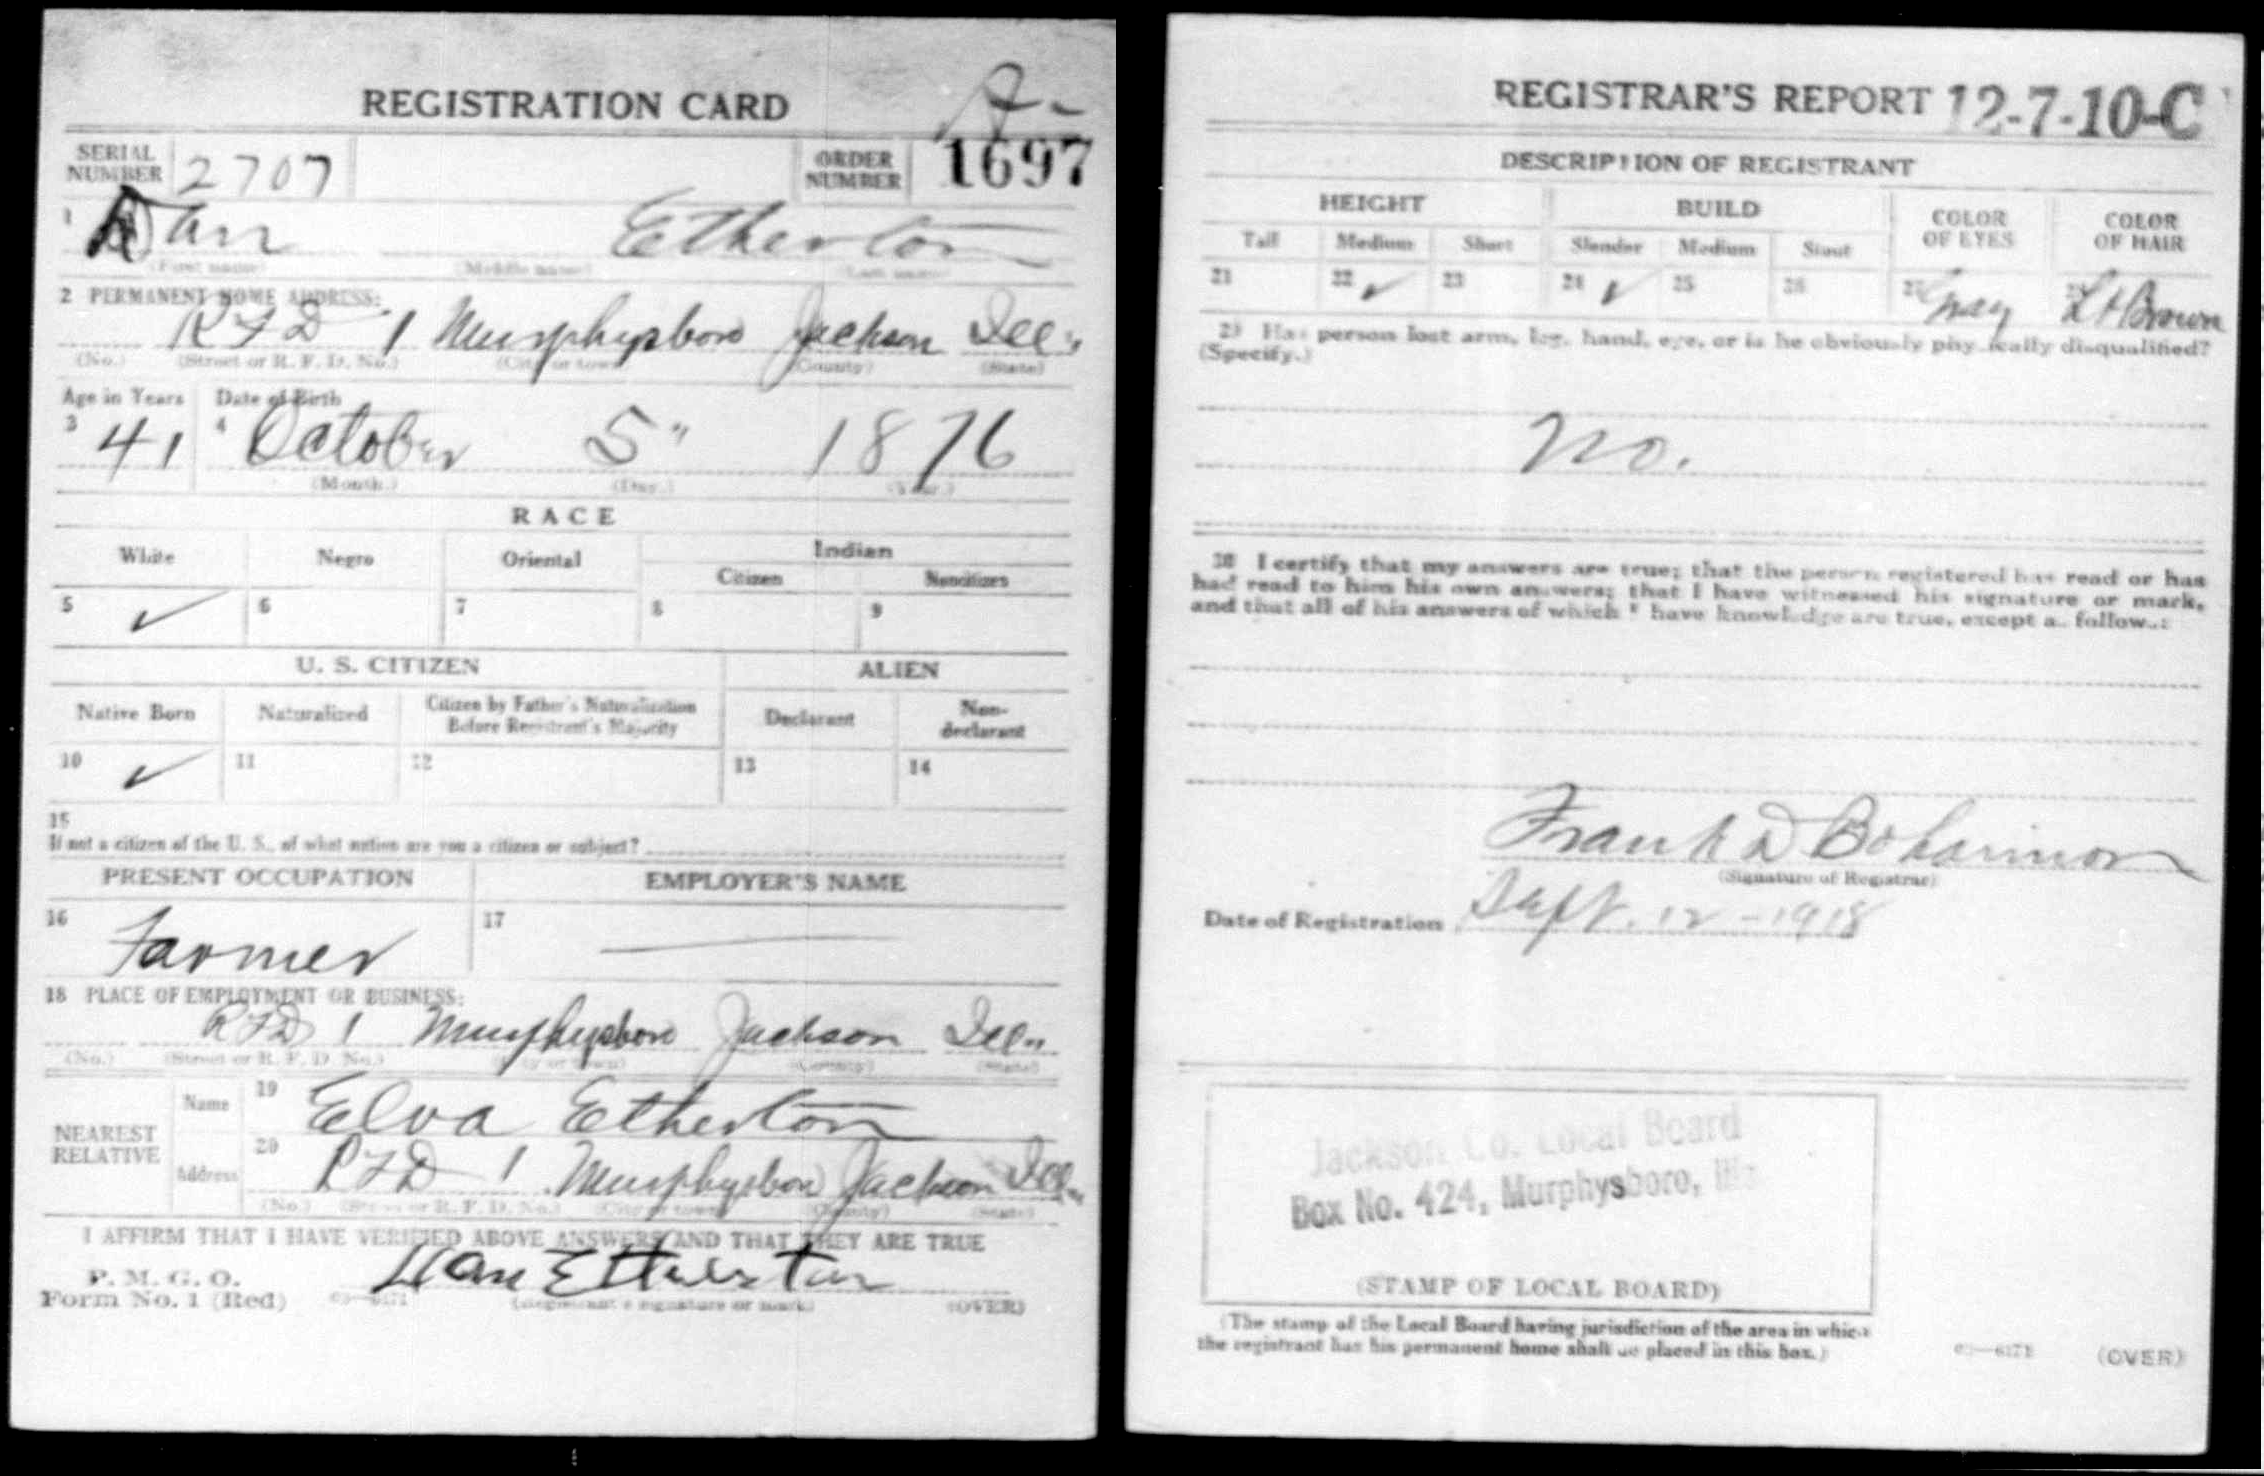 REGISTRATION CARD
A-
SERIAL NUMBER 2707 ORDER NUMBER 1697
1 Dan Etherton
(First name) (Middle name) (Last name)
2 PERMANENT HOME ADDRESS:
RFD 1 Murphysboro Jackson Ill"
(No.) (Street or R. F. D. No.) (City or town) (County) (State)
Age in Years Date of Birth
3 41 4 October 5" 1876
(Month.) (Day.) (Year.)
RACE
White Negro Oriental Indian
Citizen Noncitizen
5 ✓ 6 7 8 9
U. S. CITIZEN ALIEN
Native Born Naturalized Citizen by Father's Naturalization Before Registrant's Majority Declarant Non-declarant
10 ✓ 11 12 13 14
15
If not a citizen of the U. S., of what nation are you a citizen or subject?
PRESENT OCCUPATION EMPLOYER'S NAME
16 Farmer 17 —
18 PLACE OF EMPLOYMENT OR BUSINESS:
RFD 1 Murphysboro Jackson Ill"
(No.) (Street or R. F. D. No.) (City or town) (County) (State)
NEAREST RELATIVE
Name 19 Elva Etherton
Address 20 RFD 1 Murphysboro Jackson Ill"
(No.) (Street or R. F. D. No.) (City or town) (County) (State)
I AFFIRM THAT I HAVE VERIFIED ABOVE ANSWERS AND THAT THEY ARE TRUE
P. M. G. O.
Form No. 1 (Red) 03—6171 Dan Etherton
(Registrant's signature or mark) (OVER)
REGISTRAR'S REPORT 12-7-10-C
DESCRIPTION OF REGISTRANT
HEIGHT BUILD COLOR OF EYES COLOR OF HAIR
Tall Medium Short Slender Medium Stout
21 22 ✓ 23 24 ✓ 25 26 27 Gray 28 Lt Brown
29 Has person lost arm, leg, hand, eye, or is he obviously physically disqualified?
(Specify.)
No.
30 I certify that my answers are true; that the person registered has read or has
had read to him his own answers; that I have witnessed his signature or mark,
and that all of his answers of which I have knowledge are true, except as follows:
Frank D Bohannon
(Signature of Registrar)
Date of Registration Sept. 12 - 1918
Jackson Co. Local Board
Box No. 424, Murphysboro, Ills
(STAMP OF LOCAL BOARD)
(The stamp of the Local Board having jurisdiction of the area in which
the registrant has his permanent home shall be placed in this box.)
03—6171 (OVER)